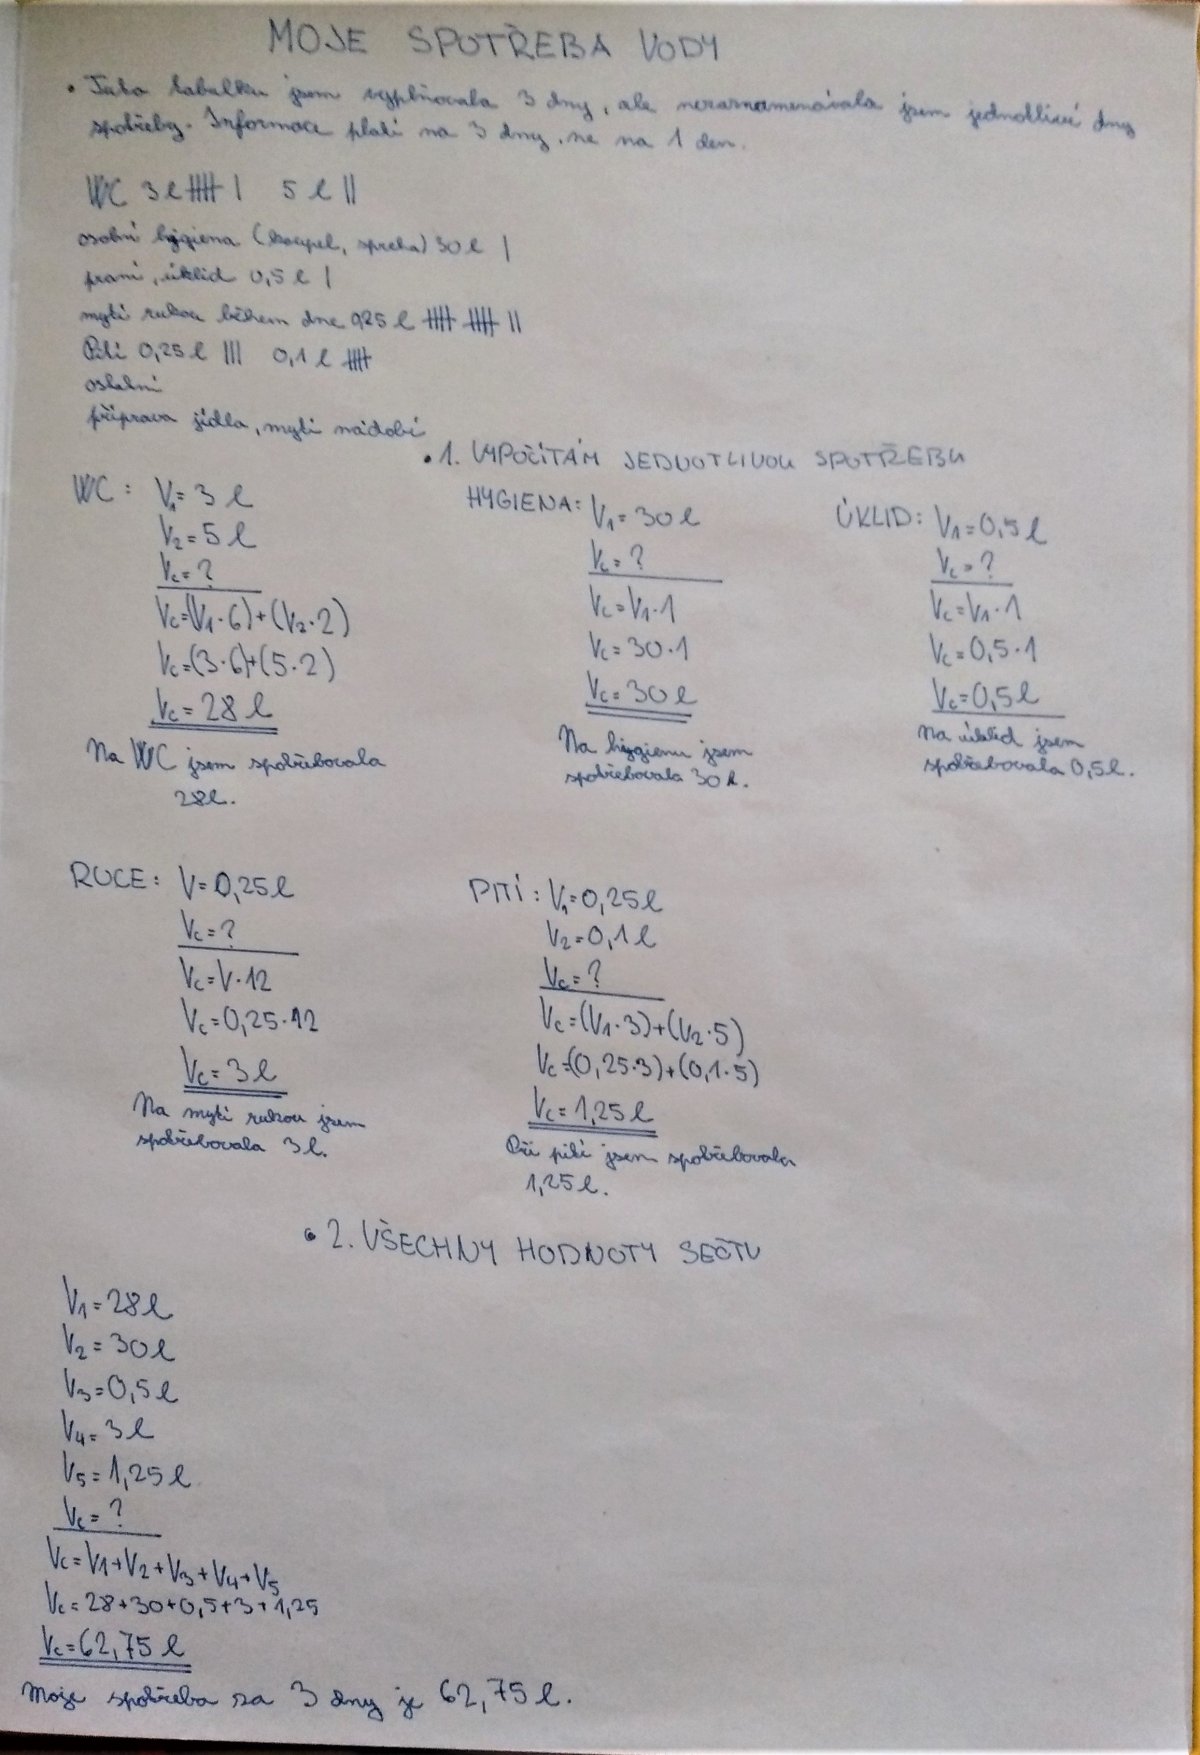 MOJE SPOTŘEBA VODY
• Tuto tabulku jsem vyplňovala 3 dny, ale nezaznamenávala jsem jednotlivé dny
spotřeby. Informace platí na 3 dny, ne na 1 den.
WC 3 l |||| | 5 l ||
osobní hygiena (koupel, sprcha) 30 l |
praní, úklid 0,5 l |
mytí rukou během dne 0,25 l |||| |||| ||
Pití 0,25 l ||| 0,1 l ||||
ostatní
příprava jídla, mytí nádobí
• 1. VYPOČÍTÁM JEDNOTLIVOU SPOTŘEBU
WC: V₁= 3 l
V₂= 5 l
Vc= ?
Vc=(V₁·6)+(V₂·2)
Vc=(3·6)+(5·2)
Vc= 28 l
Na WC jsem spotřebovala
28l.
HYGIENA: V₁= 30 l
Vc= ?
Vc=V₁·1
Vc= 30·1
Vc= 30 l
Na hygienu jsem
spotřebovala 30 l.
ÚKLID: V₁=0,5 l
Vc= ?
Vc=V₁·1
Vc=0,5·1
Vc=0,5 l
Na úklid jsem
spotřebovala 0,5l.
RUCE: V=0,25 l
Vc= ?
Vc=V·12
Vc=0,25·12
Vc= 3 l
Na mytí rukou jsem
spotřebovala 3 l.
PITÍ: V₁=0,25 l
V₂=0,1 l
Vc= ?
Vc=(V₁·3)+(V₂·5)
Vc=(0,25·3)+(0,1·5)
Vc=1,25 l
Při pití jsem spotřebovala
1,25 l.
• 2. VŠECHNY HODNOTY SEČTU
V₁= 28 l
V₂= 30 l
V₃=0,5 l
V₄= 3 l
V₅= 1,25 l
Vc= ?
Vc=V₁+V₂+V₃+V₄+V₅
Vc=28+30+0,5+3+1,25
Vc=62,75 l
Moje spotřeba za 3 dny je 62,75 l.